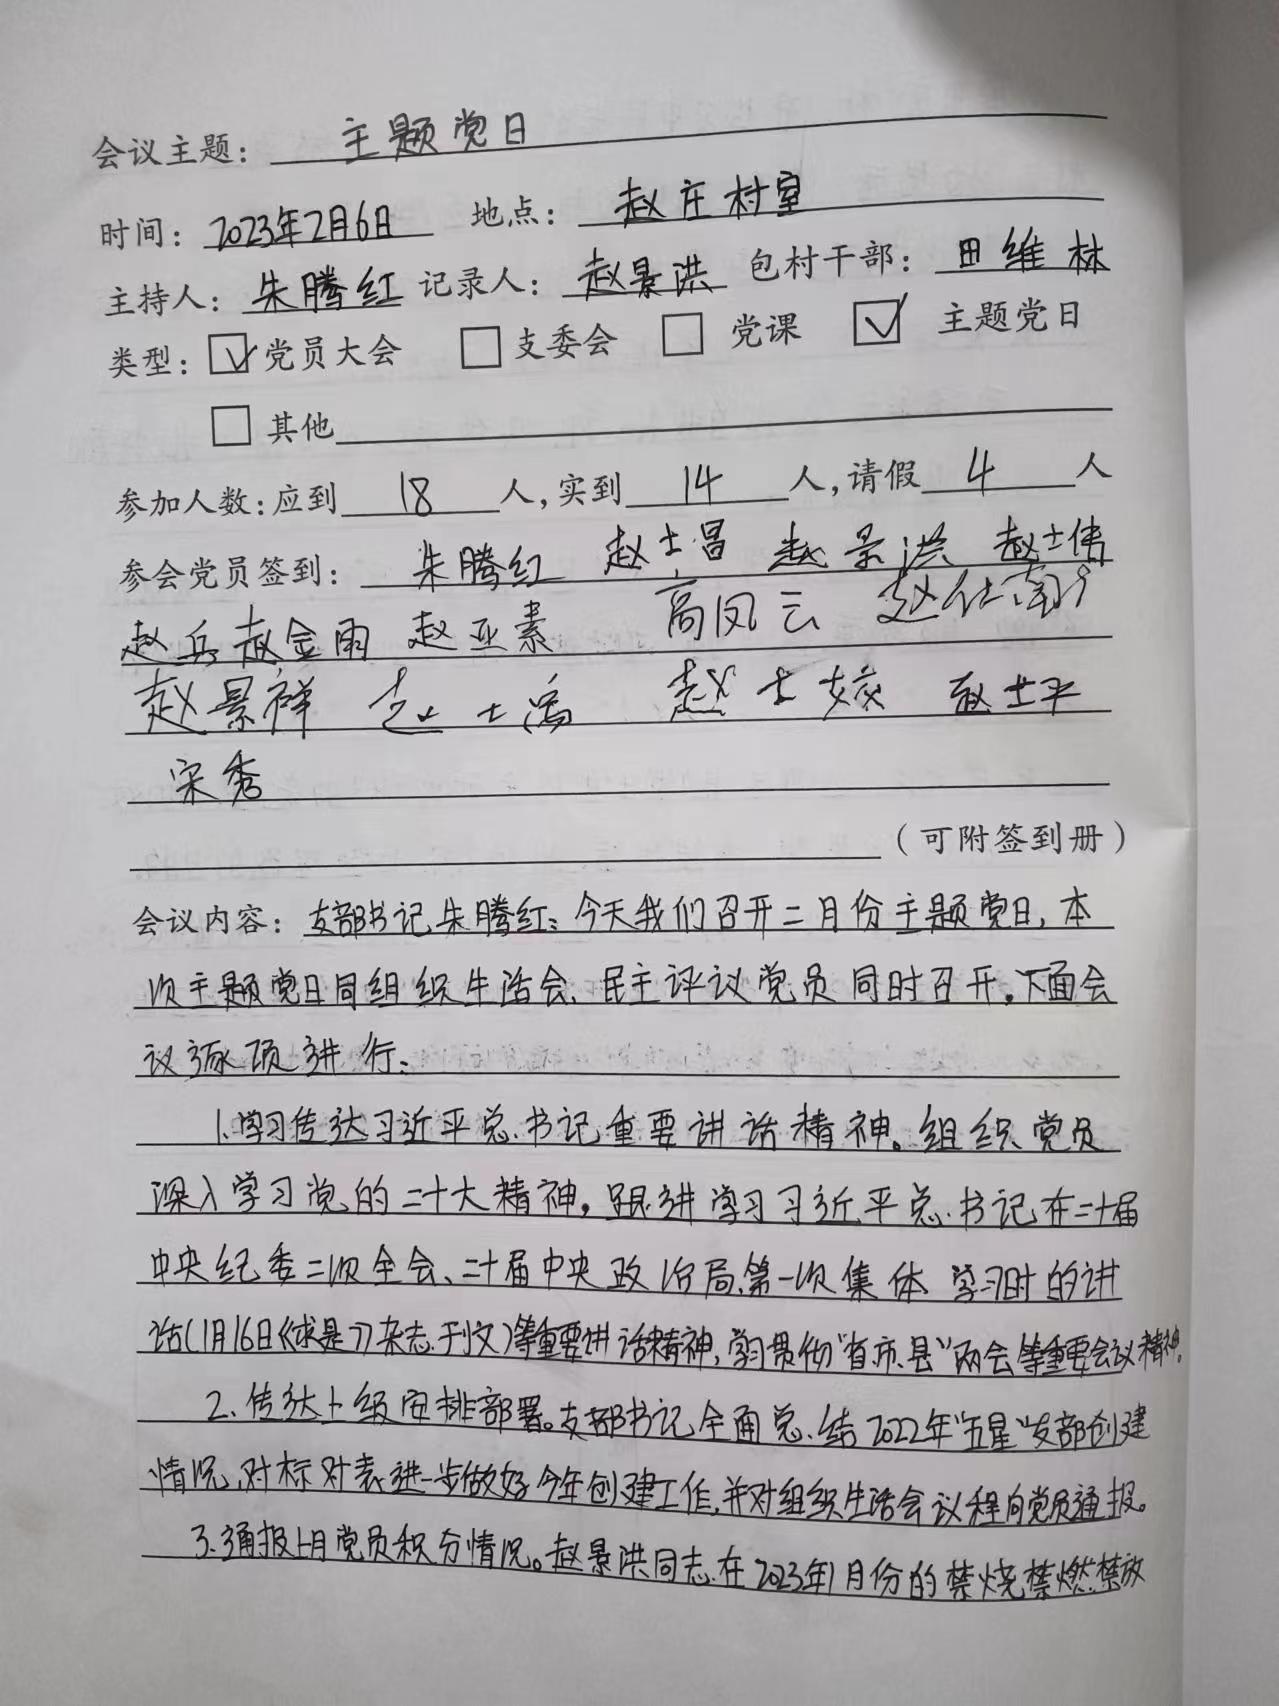 会议主题： 主题党日
时间：2023年2月6日 地点： 赵庄村室
主持人：朱腾红 记录人：赵景洪 包村干部：田维林
类型：☑党员大会 □支委会 □党课 ☑主题党日
□其他
参加人数：应到 18 人，实到 14 人，请假 4 人
参会党员签到： 朱腾红 赵士昌 赵景洪 赵士伟
赵兵 赵金雨 赵亚素 高凤云
赵景祥 赵士平
宋秀
（可附签到册）
会议内容：支部书记朱腾红：今天我们召开二月份主题党日，本
次主题党日同组织生活会、民主评议党员同时召开。下面会
议逐项进行：
1.学习传达习近平总书记重要讲话精神。组织党员
深入学习党的二十大精神，跟进学习习近平总书记在二十届
中央纪委二次全会、二十届中央政治局第一次集体学习时的讲
话（1月16日《求是》杂志刊文）等重要讲话精神，学习贯彻“省市县”两会等重要会议精神。
2.传达上级安排部署。支部书记全面总结2022年“五星”支部创建
情况，对标对表进一步做好今年创建工作，并对组织生活会议程向党员通报。
3.通报上月党员积分情况。赵景洪同志在2023年1月份的禁烧禁燃禁放